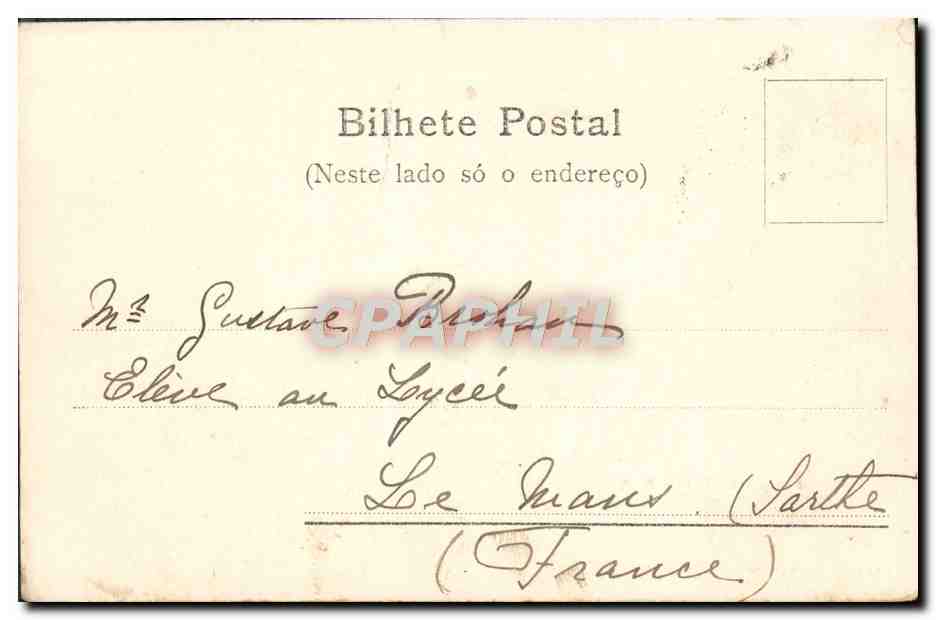 Bilhete Postal
(Neste lado só o endereço)
Mr Gustave Brohan
CPAPHIL
Elève au Lycée
Le Mans (Sarthe
(France)